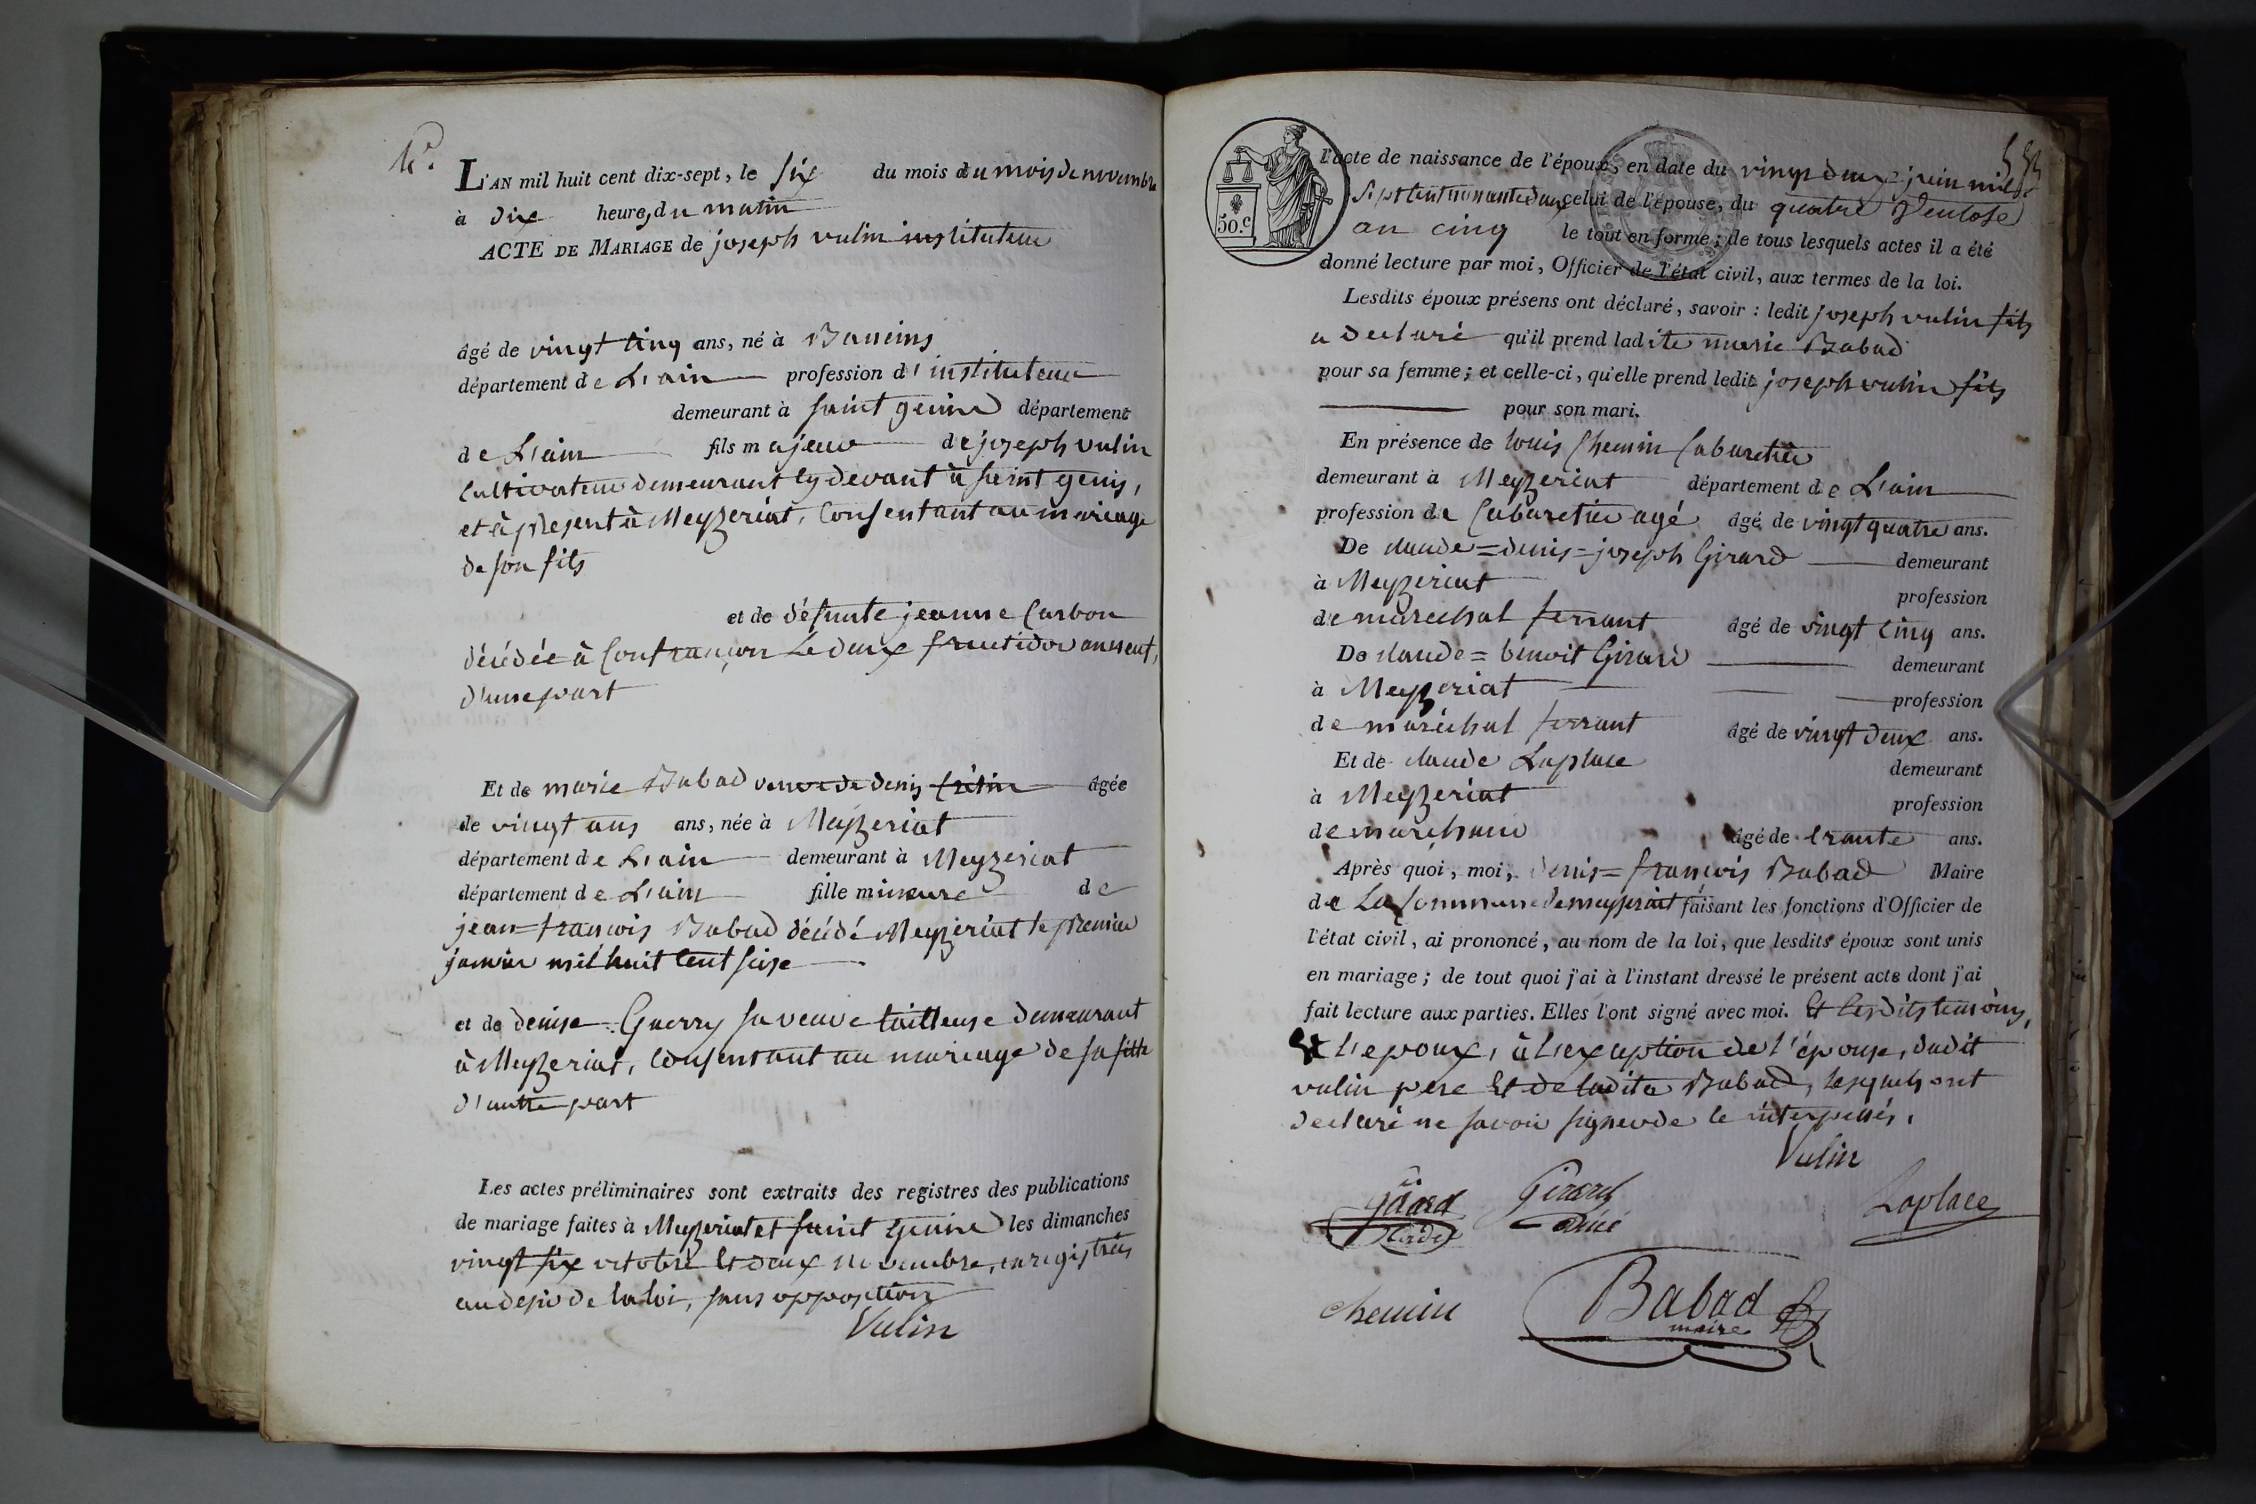 L'AN mil huit cent dix-sept, le six du mois du mois de novembre
à dix heures du matin
ACTE DE MARIAGE de joseph vulin instituteur
âgé de vingt cinq ans, né à Baneins
département de L'ain profession d'instituteur
demeurant à saint genis département
de L'ain fils majeur de joseph vulin
Cultivateur demeurant cy devant à saint genis,
et à present à Meyzeriat, Consentant au mariage
de son fils
et de défunte jeanne Carbon
décédée à Confrançon Le deux fructidor an sept,
d'une part
Et de marie Babad veuve de denis âgée
de vingt ans ans, née à Meyzeriat
département de L'ain demeurant à Meyzeriat
département de L'ain fille mineure de
jean=francois Babad décédé Meyzeriat le premier
janvier mil huit cent seise
et de denise Guerry sa veuve tailleuse demeurant
à Meyzeriat, Consentant au mariage de sa fille
d'autre part
Les actes préliminaires sont extraits des registres des publications
de mariage faites à Meyzeriat et saint genis les dimanches
vingt six octobre et deux novembre, enregistrées
au desir de la loi, sans opposition
Vulin
50.C
l'acte de naissance de l'époux, en date du vingt deux juin mil
sept cent nonante deux celui de l'épouse, du quatre Ventose
an cinq le tout en forme; de tous lesquels actes il a été
donné lecture par moi, Officier de l'état civil, aux termes de la loi.
Lesdits époux présens ont déclaré, savoir : ledit joseph vulin fils
a declaré qu'il prend ladite marie Babad
pour sa femme; et celle-ci, qu'elle prend ledit joseph vulin fils
pour son mari.
En présence de louis Chemin Cabaretier
demeurant à Meyzeriat département de L'ain
profession de Cabaretier agé âgé de vingt quatre ans.
De claude=denis=joseph Girard demeurant
à Meyzeriat
profession
de marechal ferrant âgé de vingt cinq ans.
De claude=benoit Girard demeurant
à Meyzeriat profession
de maréchal ferrant âgé de vingt deux ans.
Et de claude Laplace demeurant
à Meyzeriat profession
de marchand âgé de trante ans.
Après quoi, moi, denis=francois Babad Maire
de La Commune de meyzeriat faisant les fonctions d'Officier de
l'état civil, ai prononcé, au nom de la loi, que lesdits époux sont unis
en mariage; de tout quoi j'ai à l'instant dressé le présent acte dont j'ai
fait lecture aux parties. Elles l'ont signé avec moi. Et lesdits temoins,
Et L'epoux, à L'exception de l'épouse, dudit
vulin pere Et de ladite Babad, lesquels ont
declaré ne savoir signer de le interpellés.
Vulin
Girard Girard Laplace
Cadet ainé
Chemin Babad
maire